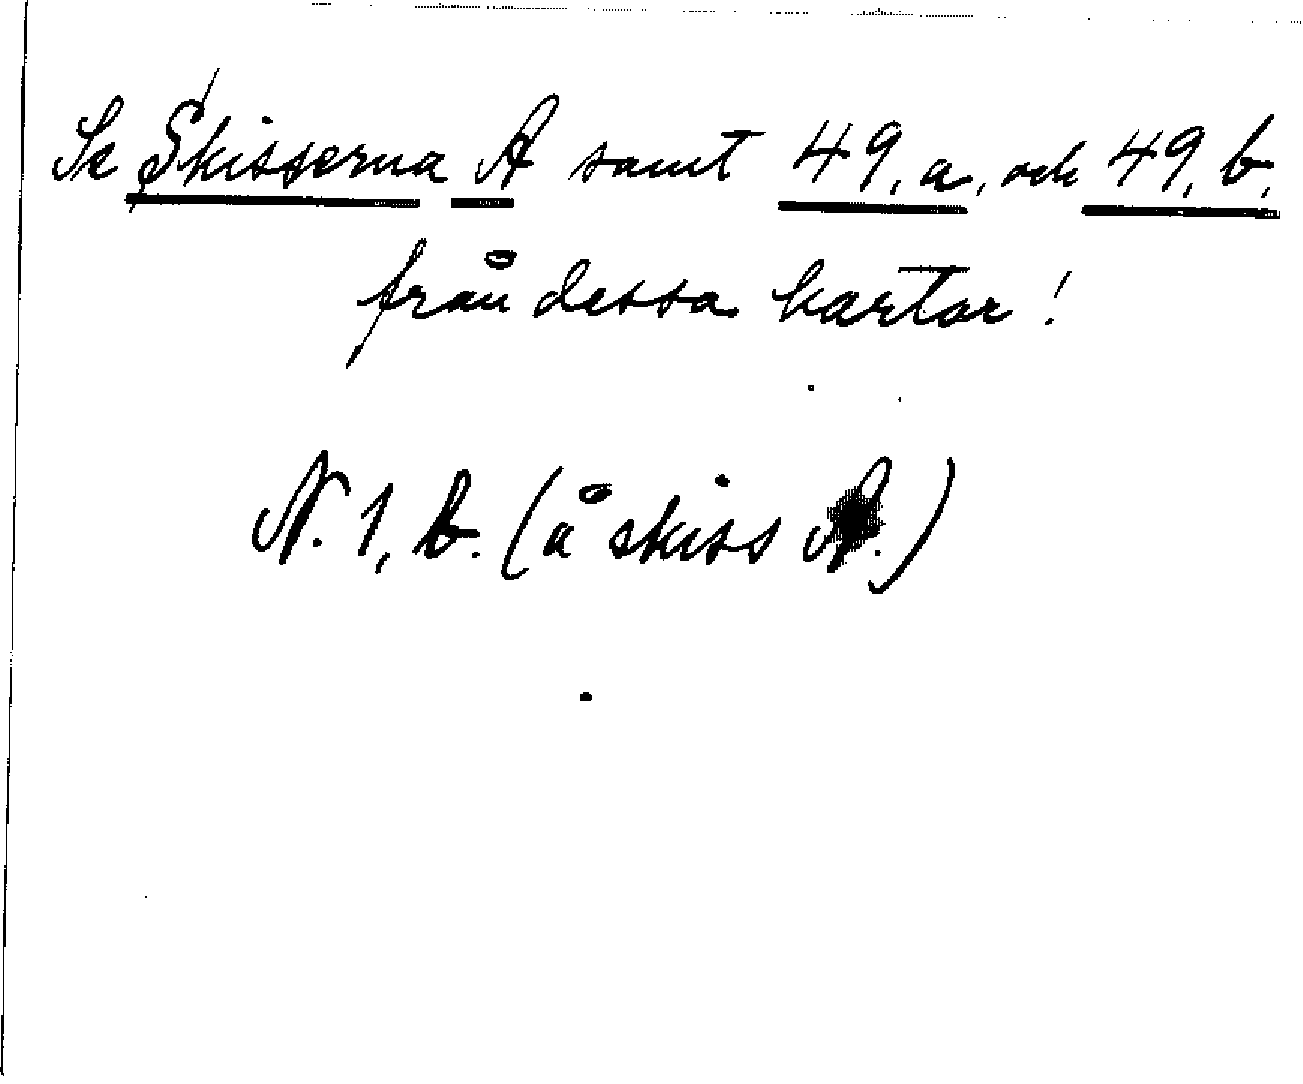 Se Skisserna A samt 49, a, och 49, b,
från dessa kartor!
N. 1, b. (å skiss A.)